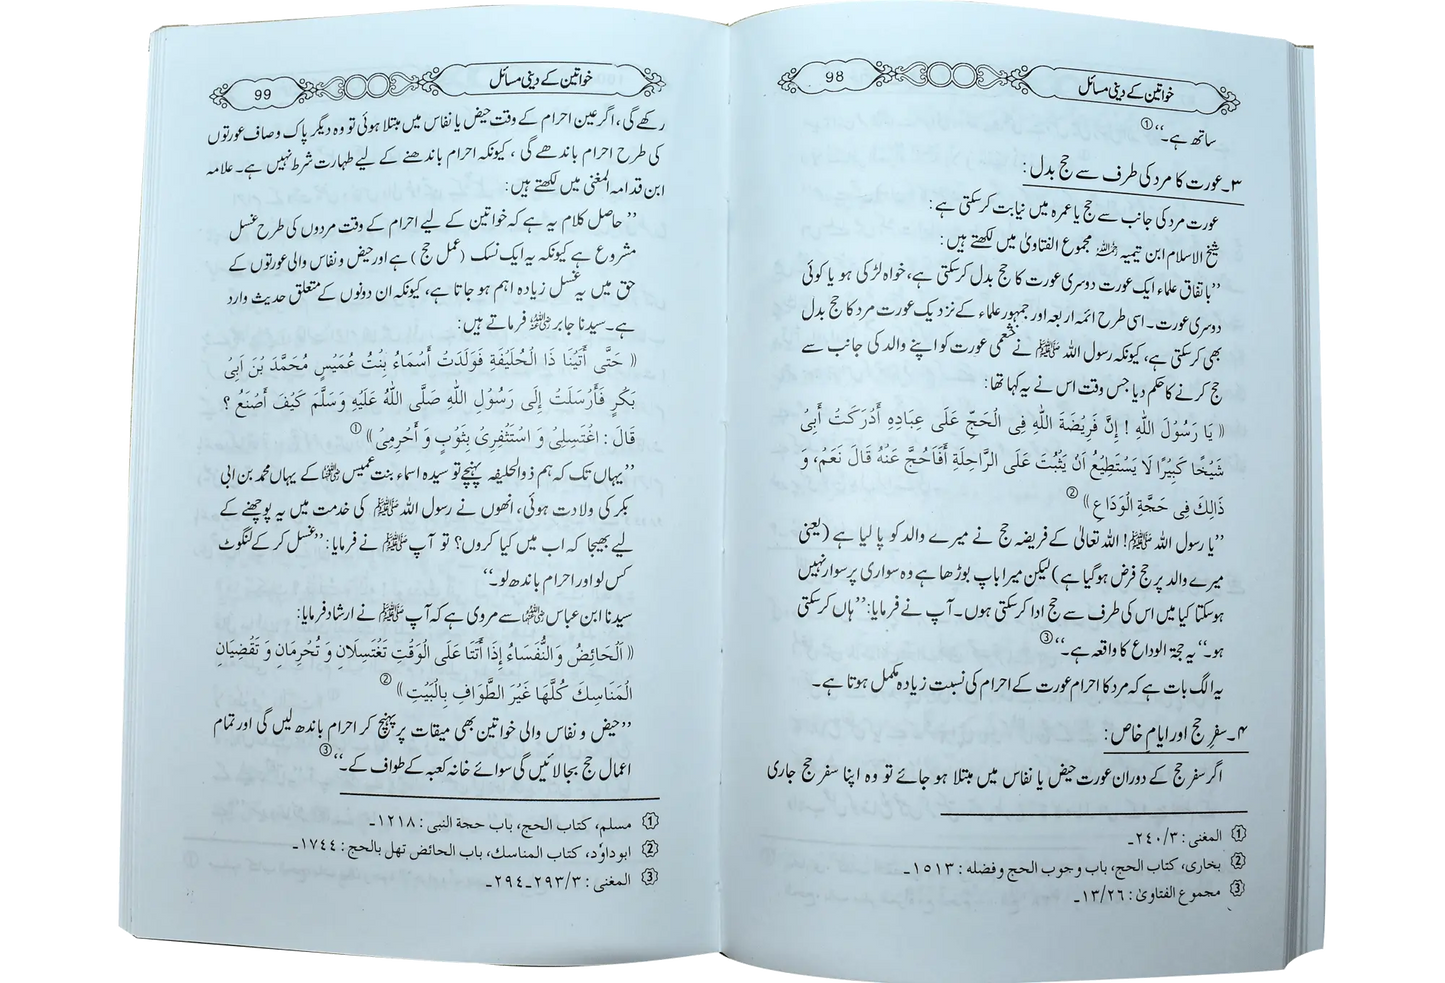 خواتین کے دینی مسائل 98
ساتھ ہے۔‘‘①
۳۔ عورت کا مرد کی طرف سے حج بدل:
عورت مرد کی جانب سے حج یا عمرہ میں نیابت کر سکتی ہے:
شیخ الاسلام ابن تیمیہ رحمہ اللہ مجموع الفتاویٰ میں لکھتے ہیں:
’’باتفاق علماء ایک عورت دوسری عورت کا حج بدل کر سکتی ہے، خواہ لڑکی ہو یا کوئی
دوسری عورت۔ اسی طرح ائمہ اربعہ اور جمہور علماء کے نزدیک عورت مرد کا حج بدل
بھی کر سکتی ہے، کیونکہ رسول اللہ ﷺ نے خثعمی عورت کو اپنے والد کی جانب سے
حج کرنے کا حکم دیا جس وقت اس نے یہ کہا تھا:
(( يَا رَسُوْلَ اللّٰهِ ! إِنَّ فَرِيْضَةَ اللّٰهِ فِى الْحَجِّ عَلَى عِبَادِهِ أَدْرَكَتْ أَبِىْ
شَيْخًا كَبِيْرًا لَا يَسْتَطِيْعُ اَنْ يَثْبُتَ عَلَى الرَّاحِلَةِ أَفَأَحُجُّ عَنْهُ قَالَ نَعَمْ، وَ
ذَالِكَ فِى حَجَّةِ الْوَدَاعِ ))②
’’یا رسول اللہ ﷺ! اللہ تعالیٰ کے فریضہ حج نے میرے والد کو پا لیا ہے (یعنی
میرے والد پر حج فرض ہوگیا ہے) لیکن میرا باپ بوڑھا ہے وہ سواری پر سوار نہیں
ہوسکتا کیا میں اس کی طرف سے حج ادا کر سکتی ہوں۔ آپ نے فرمایا: ’’ہاں کر سکتی
ہو۔‘‘ یہ حجۃ الوداع کا واقعہ ہے۔‘‘③
یہ الگ بات ہے کہ مرد کا احرام عورت کے احرام کی نسبت زیادہ مکمل ہوتا ہے۔
۴۔ سفرِ حج اور ایامِ خاص:
اگر سفر حج کے دوران عورت حیض یا نفاس میں مبتلا ہو جائے تو وہ اپنا سفر حج جاری
① المغنی : ۳/۲۴۰۔
② بخاری، کتاب الحج، باب وجوب الحج وفضله : ۱۵۱۳۔
③ مجموع الفتاویٰ : ۲۶/۱۳۔
خواتین کے دینی مسائل 99
رکھے گی، اگر عین احرام کے وقت حیض یا نفاس میں مبتلا ہوئی تو وہ دیگر پاک وصاف عورتوں
کی طرح احرام باندھے گی، کیونکہ احرام باندھنے کے لیے طہارت شرط نہیں ہے۔ علامہ
ابن قدامہ المغنی میں لکھتے ہیں:
’’حاصل کلام یہ ہے کہ خواتین کے لیے احرام کے وقت مردوں کی طرح غسل
مشروع ہے کیونکہ یہ ایک نسک (عمل حج) ہے اور حیض و نفاس والی عورتوں کے
حق میں یہ غسل زیادہ اہم ہو جاتا ہے، کیونکہ ان دونوں کے متعلق حدیث وارد
ہے۔ سیدنا جابر رضی اللہ عنہ فرماتے ہیں:
(( حَتَّى أَتَيْنَا ذَا الْحُلَيْفَةِ فَوَلَدَتْ أَسْمَاءُ بِنْتُ عُمَيْسٍ مُحَمَّدَ بْنَ اَبِىْ
بَكْرٍ فَأَرْسَلَتْ إِلَى رَسُوْلِ اللّٰهِ صَلَّى اللّٰهُ عَلَيْهِ وَسَلَّمَ كَيْفَ أَصْنَعُ ؟
قَالَ : اغْتَسِلِىْ وَ اسْتَثْفِرِىْ بِثَوْبٍ وَ أَحْرِمِىْ ))①
’’یہاں تک کہ ہم ذوالحلیفہ پہنچے تو سیدہ اسماء بنت عمیس رضی اللہ عنہا کے یہاں محمد بن ابی
بکر کی ولادت ہوئی، انھوں نے رسول اللہ ﷺ کی خدمت میں یہ پوچھنے کے
لیے بھیجا کہ اب میں کیا کروں؟ تو آپ ﷺ نے فرمایا: ’’غسل کر کے لنگوٹ
کس لو اور احرام باندھ لو۔‘‘
سیدنا ابن عباس رضی اللہ عنہما سے مروی ہے کہ آپ ﷺ نے ارشاد فرمایا:
(( اَلْحَائِضُ وَالنُّفَسَاءُ إِذَا أَتَتَا عَلَى الْوَقْتِ تَغْتَسِلَانِ وَ تُحْرِمَانِ وَ تَقْضِيَانِ
الْمَنَاسِكَ كُلَّهَا غَيْرَ الطَّوَافِ بِالْبَيْتِ ))②
’’حیض و نفاس والی خواتین بھی میقات پر پہنچ کر احرام باندھ لیں گی اور تمام
اعمال حج بجا لائیں گی سوائے خانہ کعبہ کے طواف کے۔‘‘③
① مسلم، کتاب الحج، باب حجة النبی : ۱۲۱۸۔
② ابوداوٗد، کتاب المناسك، باب الحائض تهل بالحج : ۱۷۴۴۔
③ المغنی : ۳/۲۹۳۔۲۹۴۔